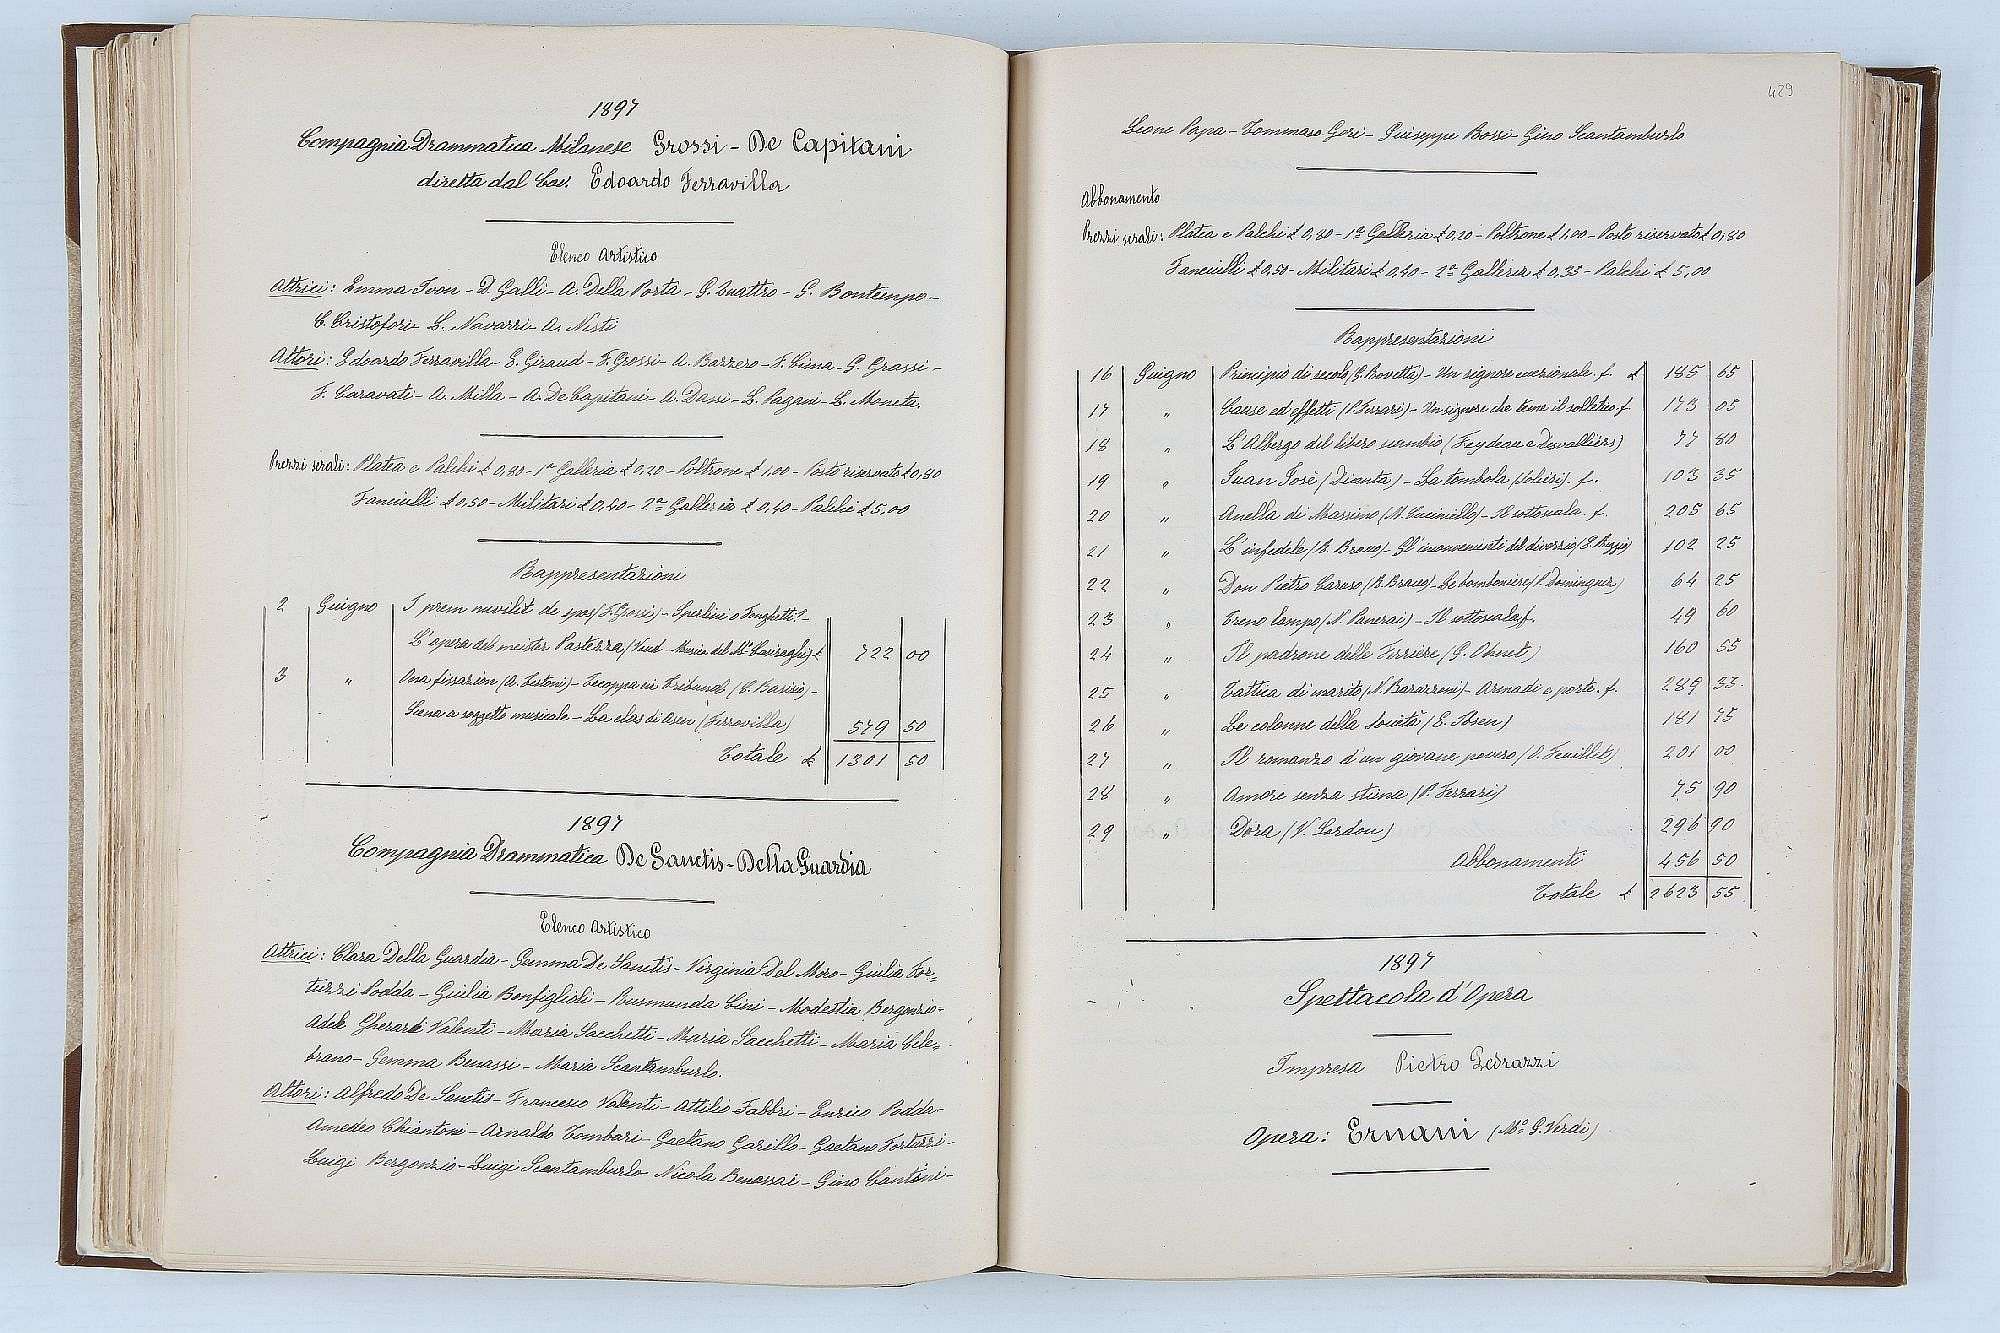 1897
Compagnia Drammatica Milanese Grossi - De Capitani
diretta dal Cav. Edoardo Ferravilla
Elenco Artistico
Attrici: Emma Ivon - D. Galli - A. Della Porta - G. Quattro - G. Bontempo -
C. Cristofori - L. Navarri - A. Nesti
Attori: Edoardo Ferravilla - E. Giraud - F. Grossi - A. Barzero - F. Cima - G. Grassi -
F. Caravati - A. Milla - A. De Capitani - A. Dassi - L. Pagani - L. Moneta.
Prezzi serali: Platea e Palchi £ 0,80 - 1ª Galleria £ 0,20 - Poltrone £ 1,00 - Posto riservato £ 0,80
Fanciulli £ 0,50 - Militari £ 0,40 - 2ª Galleria £ 0,40 - Palchi £ 5,00
Rappresentazioni
2 Guigno I prem nuvilet de spos (F. Grossi) -
L'opera del meister Pastizza - Musica del Mº Caviraghi) £ 722 00
3 " Ona fissazion (A. Testoni) - Tecoppa in Tribunal (C. Barisio) -
Scena a soggetto musicale - La clas di Asen (Ferravilla) 579 50
Totale £ 1301 50
1897
Compagnia Drammatica De Sanctis - Della Guardia
Elenco Artistico
Attrici: Clara Della Guardia - Gemma De Sanctis - Virginia Dal Moro - Giulia For=
tuzzi Podda - Giulia Bonfiglioli - Rusmunda Cini - Modestia Bergonzio -
Adele Gherardi Valenti - Maria Sacchetti - Maria Sacchetti - Maria Cele=
brano - Gemma Benassi - Maria Scantamburlo.
Attori: Alfredo De Sanctis - Francesco Valenti - Attilio Fabbri - Enrico Podda -
Amedeo Chiantoni - Arnaldo Tombari - Gaetano Garillo - Gaetano Fortuzzi -
Luigi Bergonzio - Luigi Scantamburlo Nicola Benassai - Gino Cantini -
429
Leone Papa - Tommaso Gori - Guiseppe Bossi - Gino Scantamburlo
Abbonamento
Prezzi serali: Platea e Palchi £ 0,80 - 1ª Galleria £ 0,20 - Poltrone £ 1,00 - Posto riservato £ 0,80
Fanciulli £ 0,50 - Militari £ 0,40 - 2ª Galleria £ 0,35 - Palchi £ 5,00
Rappresentazioni
16 Guigno Principio di secolo (G. Rovetta) - Un signore eccezionale. f. £ 185 65
17 " Cause ed effetti (P. Ferrari) - Un signore che teme il solletico. f 173 05
18 " L'Albergo del libero scambio (Feydeau e Desvallières) 77 80
19 " Juan Josè (Dicenta) - La tombola (Solieri). f. 103 35
20 " Anella di Massimo (M. Cuciniello) - Il sottoscala. f. 205 65
21 " L'infedele (R. Bracco) - Gl'inconvenienti del divorzio 102 25
22 " Don Pietro Caruso (R. Bracco) - Le bomboniere (P. Dominguez) 64 25
23 " Treno lampo (N. Panerai) - Il sottoscala. f. 49 60
24 " Il padrone delle Ferriere (G. Ohnet) 160 55
25 " Tattica di marito (N. Barazzoni) - Armadi e porte. f. 289 33.
26 " Le colonne della società (E. Ibsen) 181 75
27 " Il romanzo d'un giovane povero (O. Feuillet) 201 00
28 " Amore senza stima (P. Ferrari) 75 90
29 " Dora (V. Sardou) 296 90
Abbonamenti 456 50
Totale £ 2623 55
1897
Spettacola d'Opera
Impresa Pietro Pedrazzi
Opera: Ernani (Mº G. Verdi)